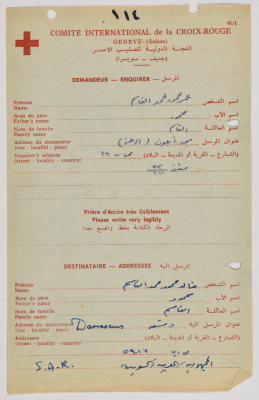 ١١٤
61/1
COMITÉ INTERNATIONAL de la CROIX-ROUGE
GENÈVE (Suisse)
اللجنة الدولية للصليب الاحمر
(جنيف - سويسرا)
DEMANDEUR - ENQUIRER - المرسل
Prénoms
Name
اسم الشخص
Nom du père
Father's name
محمود
اسم الأب
Nom de famille
Family name
القاسم
اسم العائلة
Adresse du demandeur
(rue - localité - pays)
عنوان المرسل
Enquirer's address
(street - locality - country)
(الشارع - القرية أو المدينة - البلاد)
Prière d'écrire très lisiblement
Please write very legibly
الرجاء الكتابة بخط واضح جدا
DESTINATAIRE - ADDRESSEE - المرسل اليه
Prénoms
Name
اسم الشخص
Nom du père
Father's name
محمود
اسم الأب
Nom de famille
Family name
القاسم
اسم العائلة
Adresse du destinataire
(rue - localité - pays)
Damascus
دمشق
عنوان المرسل اليه
Addressee
(street - locality - country)
(الشارع - القرية أو المدينة - البلاد)
S.A.R.
الجمهورية العربية السورية